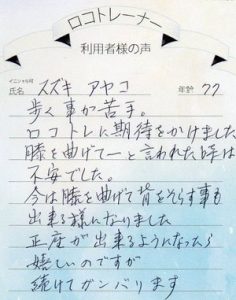 ロコトレーナー
利用者様の声
イニシャル可
氏名 スズキ アヤコ 年齢 77
歩く事が苦手。
ロコトレに期待をかけました
膝を曲げてーと言われた時は
不安でした。
今は膝を曲げて背をそらす事も
出来る様になりました
正座が出来るようになったら
嬉しいのですが
続けてガンバリます